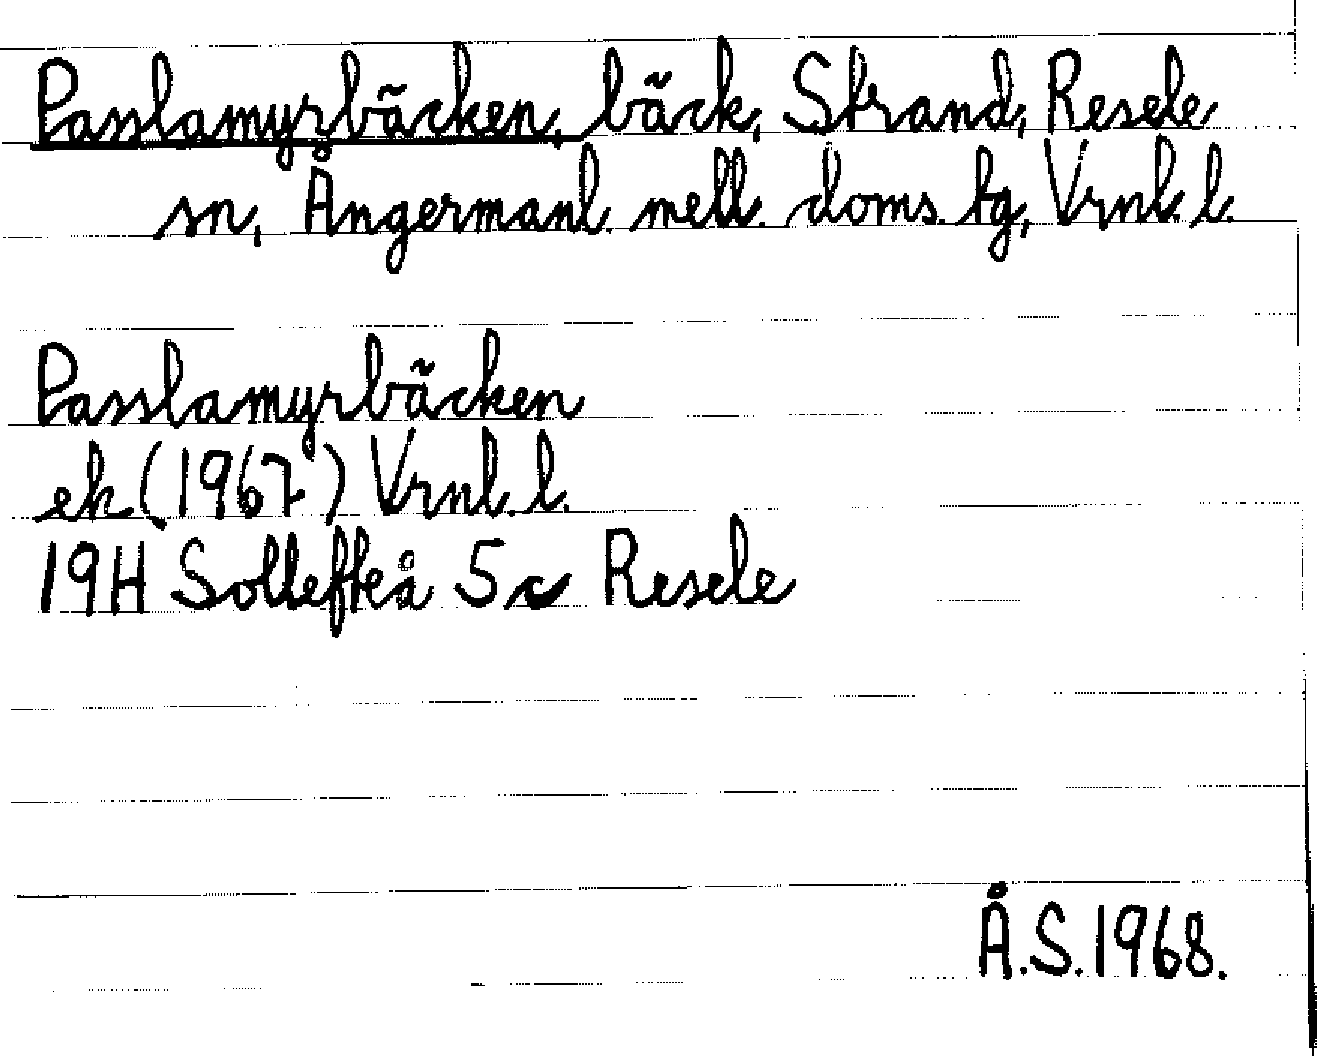 Passlamyrbäcken, bäck, Strand, Resele
sn, Ångermanl. mell. doms. tg, Vrnl. l.
Passlamyrbäcken
ek (1967) Vrnl. l.
19H Sollefteå 5c Resele
Å.S. 1968.